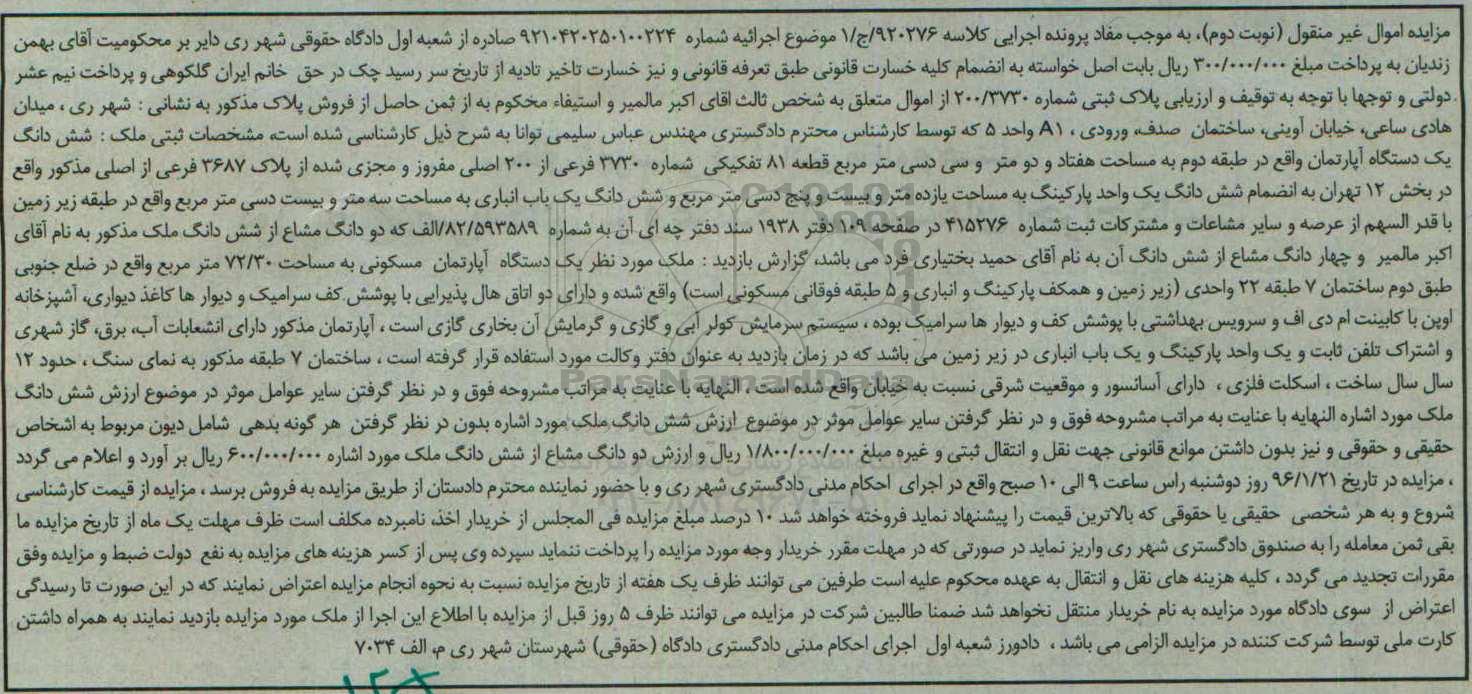 مزایده اموال غیر منقول (نوبت دوم)، به موجب مفاد پرونده اجرایی کلاسه ۹۲۰۲۷۶/ج/۱ موضوع اجرائیه شماره ۹۲۱۰۴۲۰۲۵۰۱۰۰۲۲۴ صادره از شعبه اول دادگاه حقوقی شهر ری دایر بر محکومیت آقای بهمن
زندیان به پرداخت مبلغ ۳۰۰/۰۰۰/۰۰۰ ریال بابت اصل خواسته به انضمام کلیه خسارت قانونی طبق تعرفه قانونی و نیز خسارت تاخیر تادیه از تاریخ سر رسید چک در حق خانم ایران گلکوهی و پرداخت نیم عشر
دولتی و توجها با توجه به توقیف و ارزیابی پلاک ثبتی شماره ۲۰۰/۳۷۳۰ از اموال متعلق به شخص ثالث اقای اکبر مالمیر و استیفاء محکوم به از ثمن حاصل از فروش پلاک مذکور به نشانی : شهر ری ، میدان
هادی ساعی، خیابان آوینی، ساختمان صدف، ورودی A۱ ، واحد ۵ که توسط کارشناس محترم دادگستری مهندس عباس سلیمی توانا به شرح ذیل کارشناسی شده است، مشخصات ثبتی ملک : شش دانگ
یک دستگاه آپارتمان واقع در طبقه دوم به مساحت هفتاد و دو متر و سی دسی متر مربع قطعه ۸۱ تفکیکی شماره ۳۷۳۰ فرعی از ۲۰۰ اصلی مفروز و مجزی شده از پلاک ۳۶۸۷ فرعی از اصلی مذکور واقع
در بخش ۱۲ تهران به انضمام شش دانگ یک واحد پارکینگ به مساحت یازده متر و بیست و پنج دسی متر مربع و شش دانگ یک باب انباری به مساحت سه متر و بیست دسی متر مربع واقع در طبقه زیر زمین
با قدر السهم از عرصه و سایر مشاعات و مشترکات ثبت شماره ۴۱۵۲۷۶ در صفحه ۱۰۹ دفتر ۱۹۳۸ سند دفتر چه ای آن به شماره ۸۲/۵۹۳۵۸۹/الف که دو دانگ مشاع از شش دانگ ملک مذکور به نام آقای
اکبر مالمیر و چهار دانگ مشاع از شش دانگ آن به نام آقای حمید بختیاری فرد می باشد، گزارش بازدید : ملک مورد نظر یک دستگاه آپارتمان مسکونی به مساحت ۷۲/۳۰ متر مربع واقع در ضلع جنوبی
طبق دوم ساختمان ۷ طبقه ۲۲ واحدی (زیر زمین و همکف پارکینگ و انباری و ۵ طبقه فوقانی مسکونی است) واقع شده و دارای دو اتاق هال پذیرایی با پوشش کف سرامیک و دیوار ها کاغذ دیواری، آشپزخانه
اوپن با کابینت ام دی اف و سرویس بهداشتی با پوشش کف و دیوار ها سرامیک بوده ، سیستم سرمایش کولر آبی و گازی و گرمایش آن بخاری گازی است ، آپارتمان مذکور دارای انشعابات آب، برق، گاز شهری
و اشتراک تلفن ثابت و یک واحد پارکینگ و یک باب انباری در زیر زمین می باشد که در زمان بازدید به عنوان دفتر وکالت مورد استفاده قرار گرفته است ، ساختمان ۷ طبقه مذکور به نمای سنگ ، حدود ۱۲
سال سال ساخت ، اسکلت فلزی ، دارای آسانسور و موقعیت شرقی نسبت به خیابان واقع شده است ، النهایه با عنایت به مراتب مشروحه فوق و در نظر گرفتن سایر عوامل موثر در موضوع ارزش شش دانگ
ملک مورد اشاره النهایه با عنایت به مراتب مشروحه فوق و در نظر گرفتن سایر عوامل موثر در موضوع ارزش شش دانگ ملک مورد اشاره بدون در نظر گرفتن هر گونه بدهی شامل دیون مربوط به اشخاص
حقیقی و حقوقی و نیز بدون داشتن موانع قانونی جهت نقل و انتقال ثبتی و غیره مبلغ ۱/۸۰۰/۰۰۰/۰۰۰ ریال و ارزش دو دانگ مشاع از شش دانگ ملک مورد اشاره ۶۰۰/۰۰۰/۰۰۰ ریال بر آورد و اعلام می گردد
، مزایده در تاریخ ۹۶/۱/۲۱ روز دوشنبه راس ساعت ۹ الی ۱۰ صبح واقع در اجرای احکام مدنی دادگستری شهر ری و با حضور نماینده محترم دادستان از طریق مزایده به فروش برسد ، مزایده از قیمت کارشناسی
شروع و به هر شخصی حقیقی یا حقوقی که بالاترین قیمت را پیشنهاد نماید فروخته خواهد شد ۱۰ درصد مبلغ مزایده فی المجلس از خریدار اخذ، نامبرده مکلف است ظرف مهلت یک ماه از تاریخ مزایده ما
بقی ثمن معامله را به صندوق دادگستری شهر ری واریز نماید در صورتی که در مهلت مقرر خریدار وجه مورد مزایده را پرداخت ننماید سپرده وی پس از کسر هزینه های مزایده به نفع دولت ضبط و مزایده وفق
مقررات تجدید می گردد ، کلیه هزینه های نقل و انتقال به عهده محکوم علیه است طرفین می توانند ظرف یک هفته از تاریخ مزایده نسبت به نحوه انجام مزایده اعتراض نمایند که در این صورت تا رسیدگی
اعتراض از سوی دادگاه مورد مزایده به نام خریدار منتقل نخواهد شد ضمنا طالبین شرکت در مزایده می توانند ظرف ۵ روز قبل از مزایده با اطلاع این اجرا از ملک مورد مزایده بازدید نمایند به همراه داشتن
کارت ملی توسط شرکت کننده در مزایده الزامی می باشد ، دادورز شعبه اول اجرای احکام مدنی دادگستری دادگاه (حقوقی) شهرستان شهر ری م، الف ۷۰۳۴
ParsNamadData